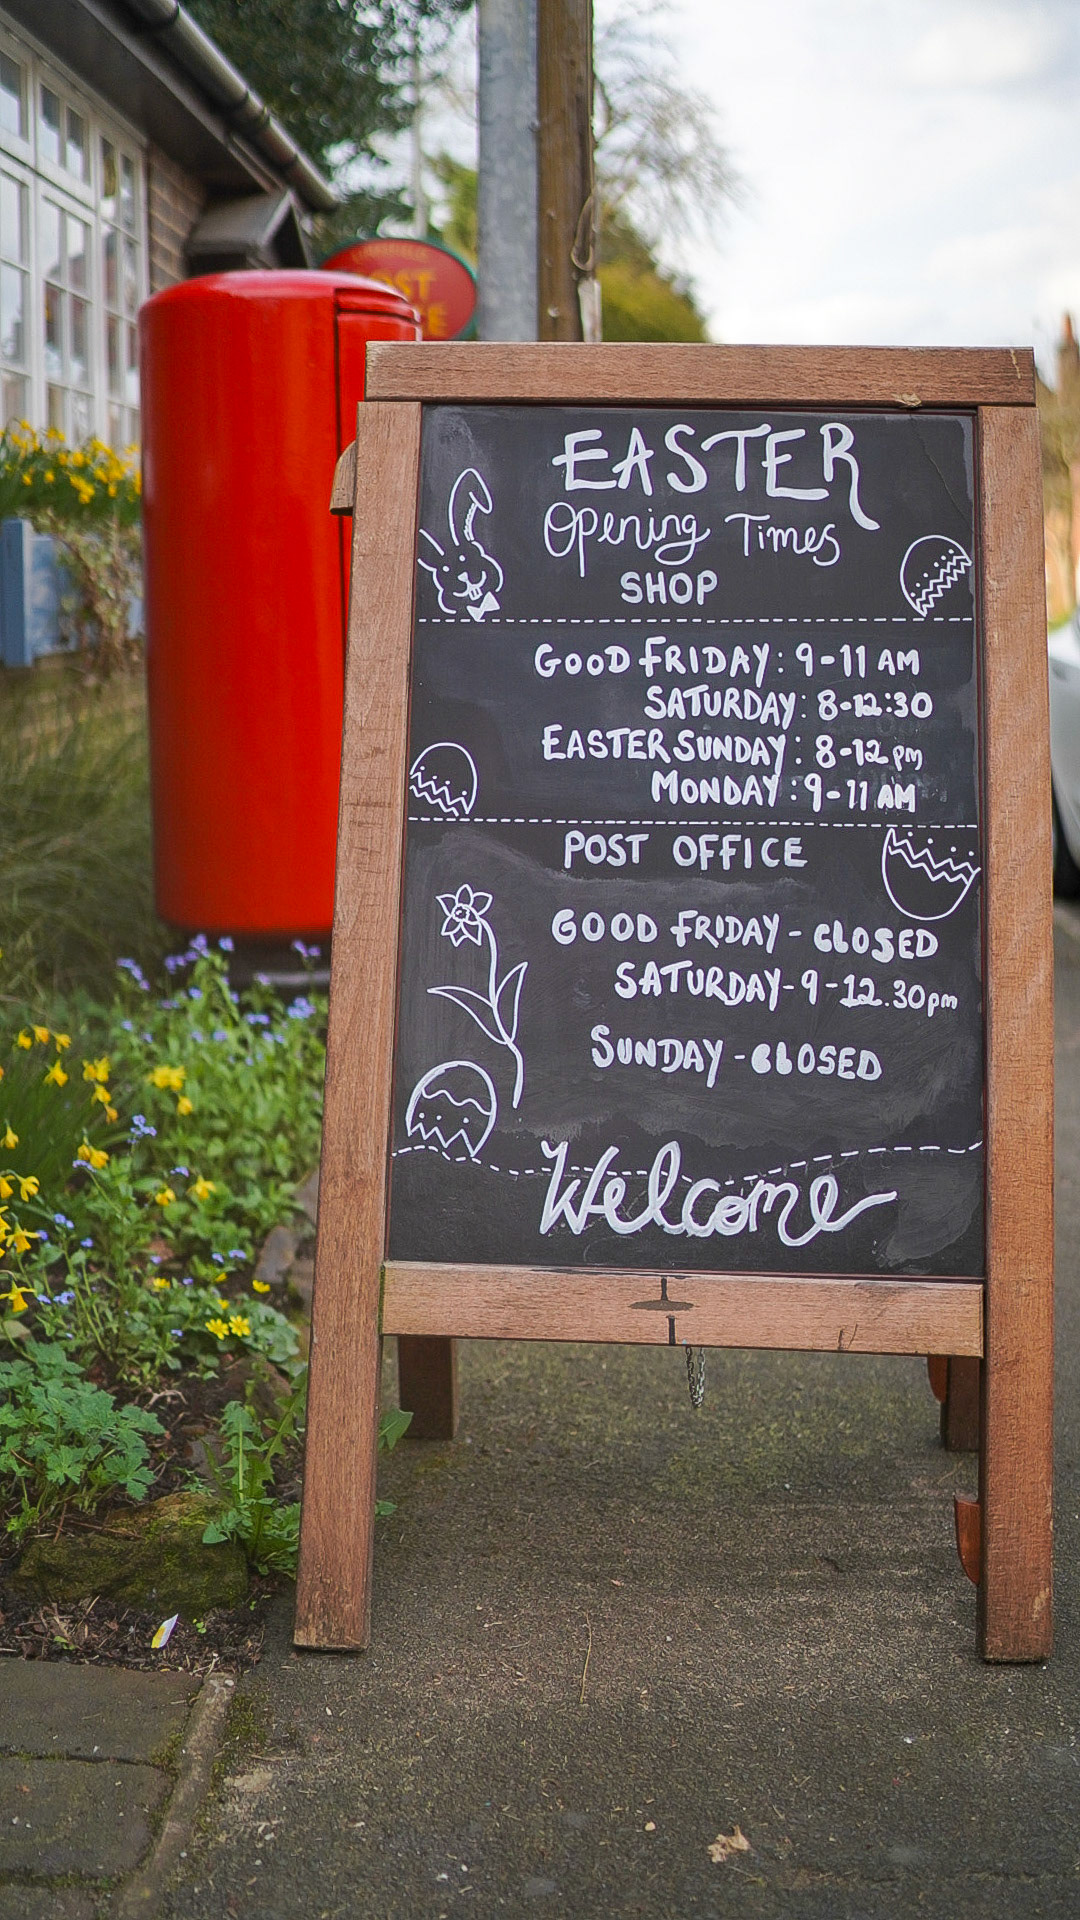 OST
E
EASTER
Opening Times
SHOP
GOOD FRIDAY: 9-11 AM
SATURDAY: 8-12:30
EASTER SUNDAY: 8-12 pm
MONDAY: 9-11 AM
POST OFFICE
GOOD FRIDAY - CLOSED
SATURDAY-9-12.30pm
SUNDAY - CLOSED
Welcome